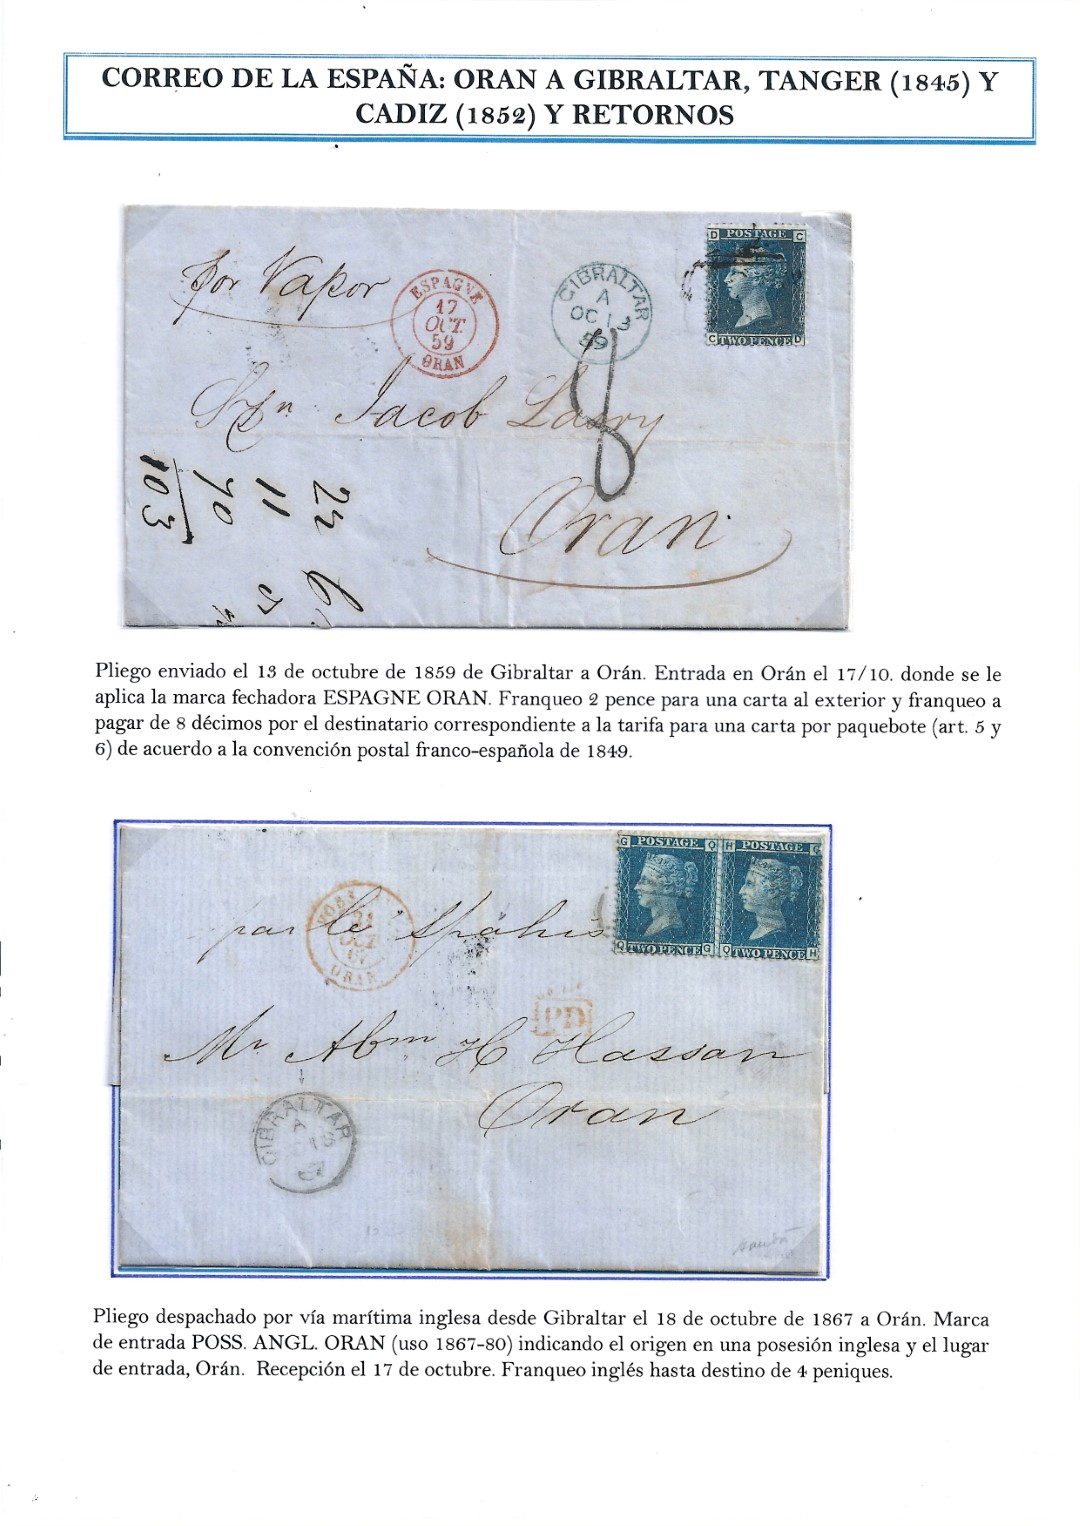 CORREO DE LA ESPAÑA: ORAN A GIBRALTAR, TANGER (1845) Y
CADIZ (1852) Y RETORNOS
POSTAGE
D C
C TWO PENCE D
por Vapor
ESPAGNE
17
OCT.
59
ORAN
GIBRALTAR
A
OC 13
59
8
Sr Dn Jacob Lasry
Oran
24
11
70
103
Pliego enviado el 13 de octubre de 1859 de Gibraltar a Orán. Entrada en Orán el 17/10. donde se le
aplica la marca fechadora ESPAGNE ORAN. Franqueo 2 pence para una carta al exterior y franqueo a
pagar de 8 décimos por el destinatario correspondiente a la tarifa para una carta por paquebote (art. 5 y
6) de acuerdo a la convención postal franco-española de 1849.
G POSTAGE Q H POSTAGE
Q TWO PENCE G Q TWO PENCE H
par le Spahis
21
OCT
ORAN
PD
Mr Abm H Hassan
Oran
GIBRALTAR
A
18
67
Pliego despachado por vía marítima inglesa desde Gibraltar el 18 de octubre de 1867 a Orán. Marca
de entrada POSS. ANGL. ORAN (uso 1867-80) indicando el origen en una posesión inglesa y el lugar
de entrada, Orán. Recepción el 17 de octubre. Franqueo inglés hasta destino de 4 peniques.